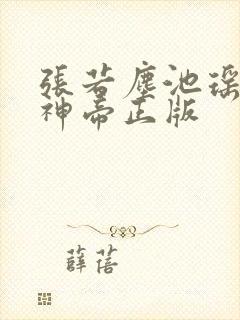 張若塵池瑤
神帝正版
薛蓓